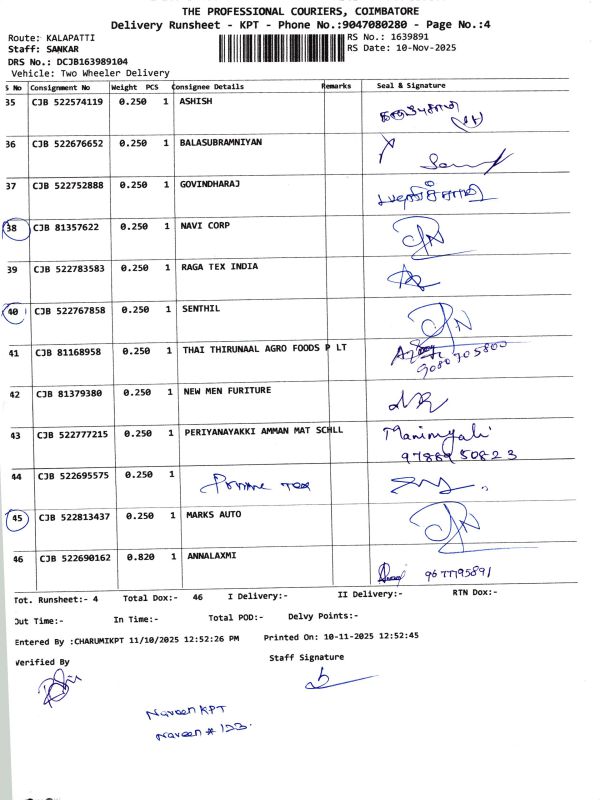 THE PROFESSIONAL COURIERS, COIMBATORE
Delivery Runsheet - KPT - Phone No.:9047080280 - Page No.:4
Route: KALAPATTI
RS No.: 1639891
Staff: SANKAR
RS Date: 10-Nov-2025
DRS No.: DCJB163989104
Vehicle: Two Wheeler Delivery
S No Consignment No Weight PCS Consignee Details Remarks Seal & Signature
35 CJB 522574119 0.250 1 ASHISH
36 CJB 522676652 0.250 1 BALASUBRAMNIYAN
37 CJB 522752888 0.250 1 GOVINDHARAJ
38 CJB 81357622 0.250 1 NAVI CORP
39 CJB 522783583 0.250 1 RAGA TEX INDIA
40 CJB 522767858 0.250 1 SENTHIL
41 CJB 81168958 0.250 1 THAI THIRUNAAL AGRO FOODS P LT
9080705800
42 CJB 81379380 0.250 1 NEW MEN FURITURE
43 CJB 522777215 0.250 1 PERIYANAYAKKI AMMAN MAT SCHLL
9788950823
44 CJB 522695575 0.250 1
45 CJB 522813437 0.250 1 MARKS AUTO
46 CJB 522690162 0.820 1 ANNALAXMI
9677795891
Tot. Runsheet:- 4 Total Dox:- 46 I Delivery:- II Delivery:- RTN Dox:-
Out Time:- In Time:- Total POD:- Delvy Points:-
Entered By :CHARUMIKPT 11/10/2025 12:52:26 PM Printed On: 10-11-2025 12:52:45
Verified By Staff Signature
Naveen KPT
Naveen # 123.